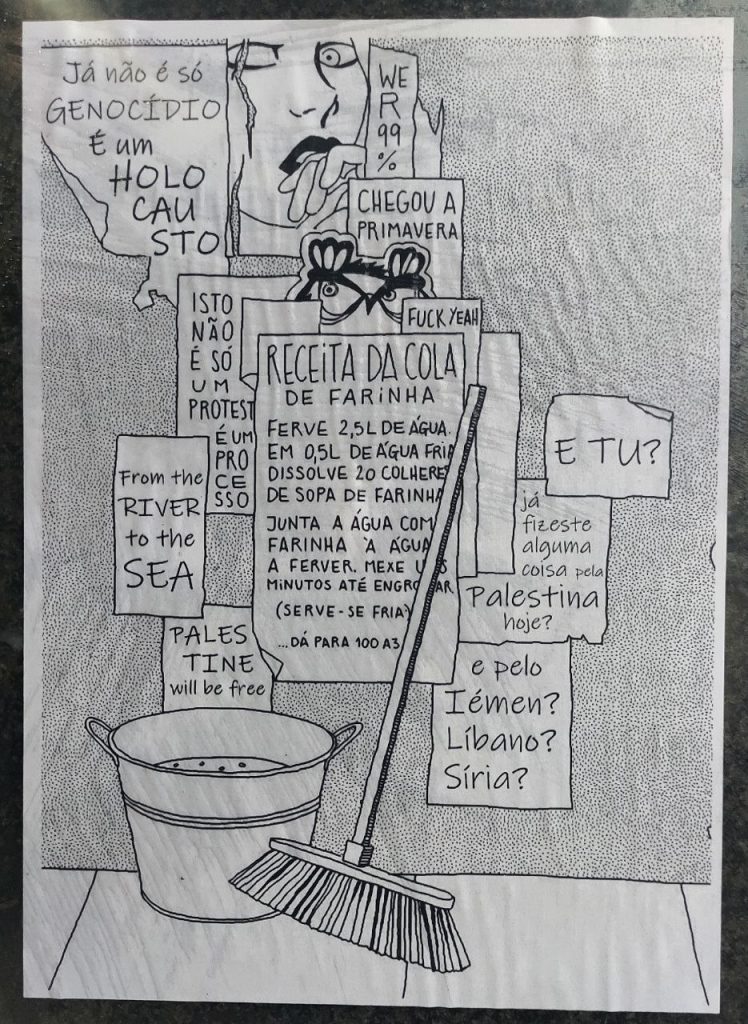 Já não é só
GENOCÍDIO
É um
HOLO
CAU
STO
WE
R
99
%
CHEGOU A
PRIMAVERA
FUCK YEAH
ISTO
NÃO
É SÓ
UM
PROTEST
É UM
PRO
CE
SSO
RECEITA DA COLA
DE FARINHA
FERVE 2,5L DE ÁGUA.
EM 0,5L DE ÁGUA FRIA
DISSOLVE 20 COLHERES
DE SOPA DE FARINHA
JUNTA A ÁGUA COM
FARINHA À ÁGUA
A FERVER. MEXE
MINUTOS ATÉ
(SERVE-SE FRIA)
...DÁ PARA 100 A3
From the
RIVER
to the
SEA
PALES
TINE
will be free
E TU?
já
fizeste
alguma
coisa pela
Palestina
hoje?
e pelo
Iémen?
Líbano?
Síria?